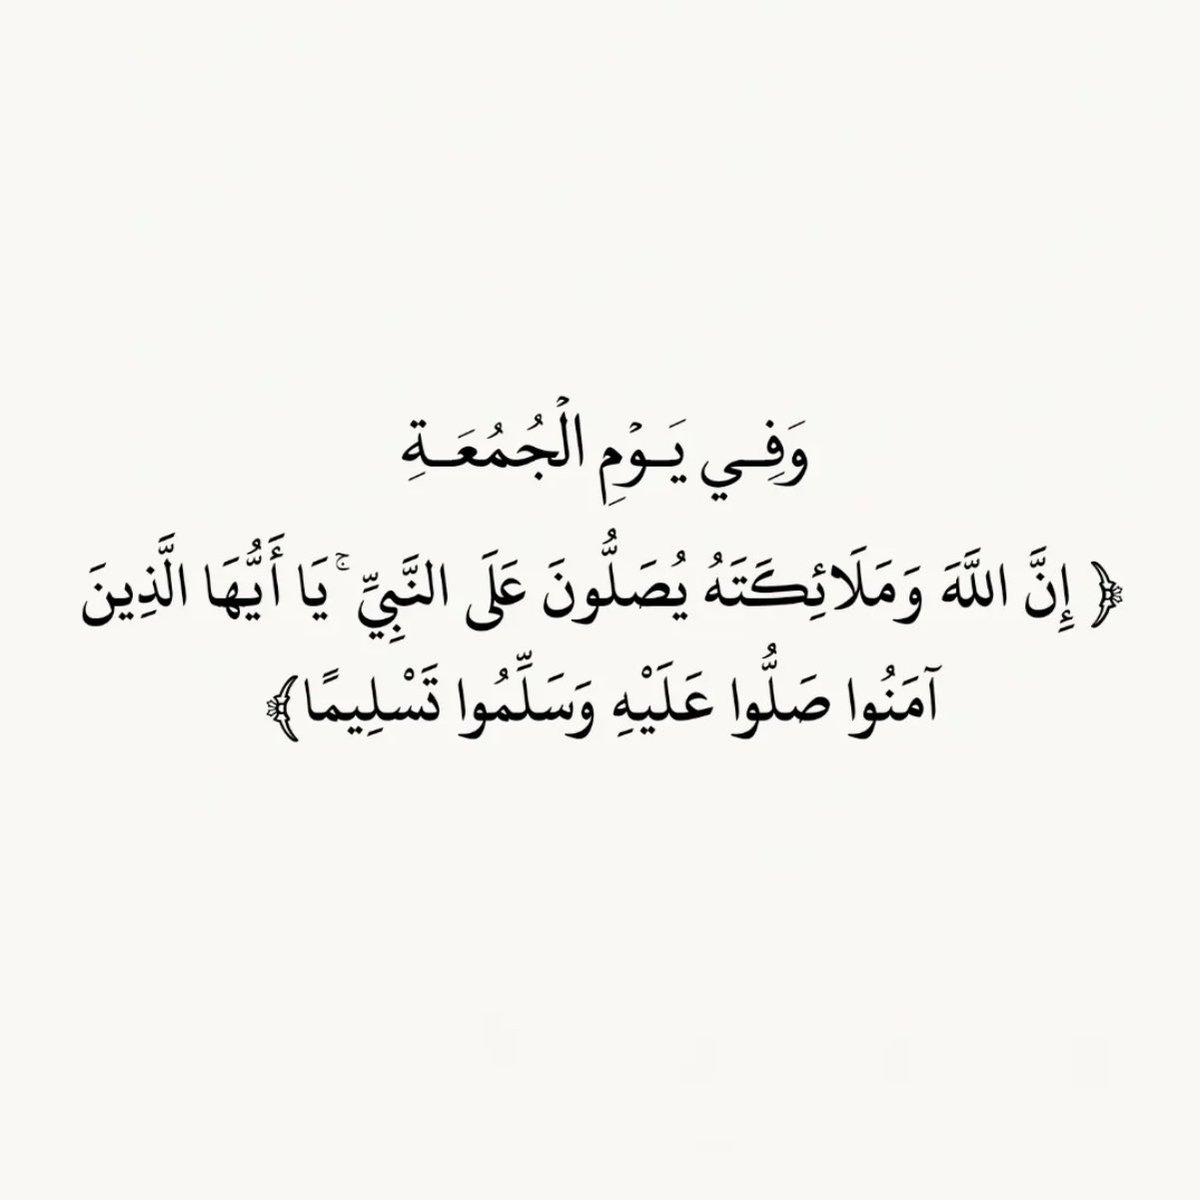 وَفِـي يَـوْمِ الْجُمُعَـةِ
﴿ إِنَّ اللَّهَ وَمَلَائِكَتَهُ يُصَلُّونَ عَلَى النَّبِيِّ ۚ يَا أَيُّهَا الَّذِينَ
آمَنُوا صَلُّوا عَلَيْهِ وَسَلِّمُوا تَسْلِيمًا﴾